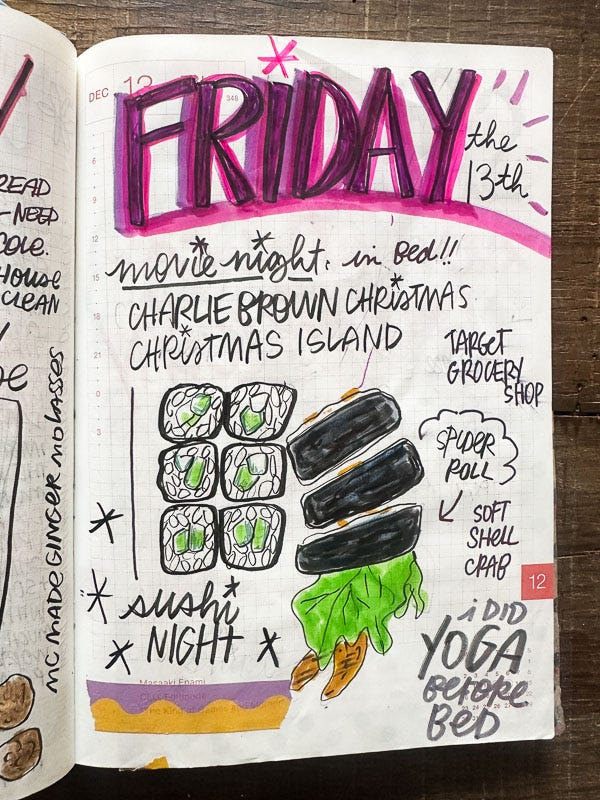 READ
-NEED
HOUSE
CLEAN
MC MADE GINGER MOLASSES
DEC 13
348
FRIDAY
the
13th
6
9
12
15
18
21
0
3
movie night. in Bed!!
CHARLIE BROWN CHRISTMAS
CHRISTMAS ISLAND
TARGET
GROCERY
SHOP
SPIDER
ROLL
SOFT
SHELL
CRAB
sushi
NIGHT
12
i DID
YOGA
BEFORE
BED
Masaaki Enami